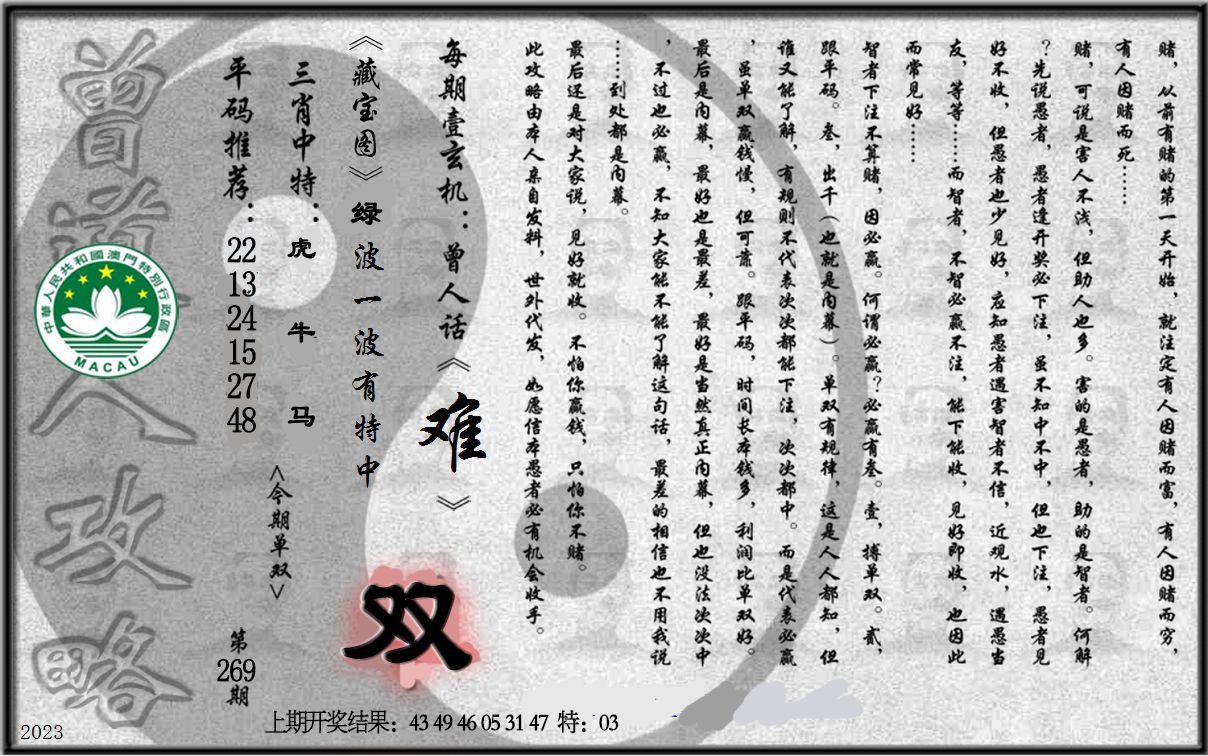 赌，从前有赌的第一天开始，就注定有人因赌而富，有人因赌而穷，
有人因赌而死……
赌，可说是害人不浅，但助人也多。害的是愚者，助的是智者。何解
？先说愚者，愚者逢开奖必下注，虽不知中不中，但也下注，愚者见
好不收，但愚者也少见好，应知愚者遇害智者不信，近观水，遇愚当
友，等等……而智者，不智必赢不注，能下能收，见好即收，也因此
而常见好……
智者下注不算赌，因必赢。何谓必赢？必赢有叁。壹，搏单双。贰，
跟平码。叁，出千（也就是内幕）。单双有规律，这是人人都知，但
谁又能了解，有规则不代表次次都能下注，次次都中。而是代表必赢
，虽单双赢钱慢，但可靠。跟平码，时间长本钱多，利润比单双好。
最后是内幕，最好也是最差，最好是当然真正内幕，但也没法次次中
，不过也必赢，不知大家能不能了解这句话，最差的相信也不用我说
……到处都是内幕。
最后还是对大家说，见好就收。不怕你赢钱，只怕你不赌。
此攻略由本人亲自发料，世外代发，如愿信本愚者必有机会收手。
每期壹玄机：曾人话《难》
《藏宝图》绿波一波有特中
双
三肖中特：虎 牛 马
<今期单双>
平码推荐：22 13 24 15 27 48
第269期
曾道人攻略
中華人民共和國澳門特別行政區
MACAU
上期开奖结果：43 49 46 05 31 47 特：03
2023